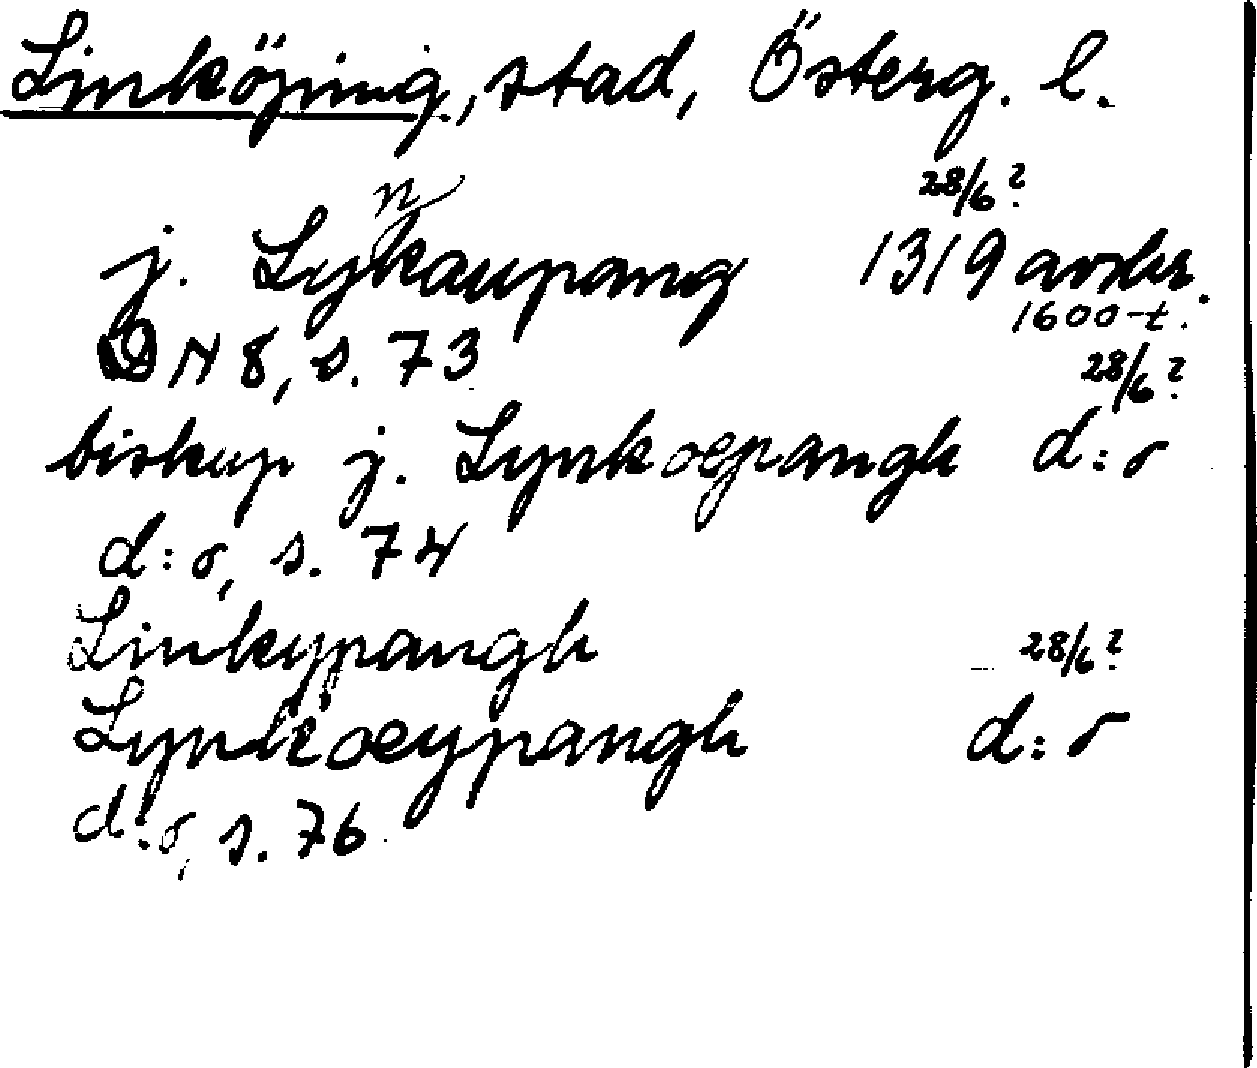 Linköping, stad, Österg. l.
28/6?
j. Lynkaupang 1319 avskr.
1600-t.
DN 8, s. 73
28/6?
biskup j. Lynkoepangh d:o
d:o, s. 74
Linkypangh 28/6?
Lynkoeypangh d:o
d:o, s. 76